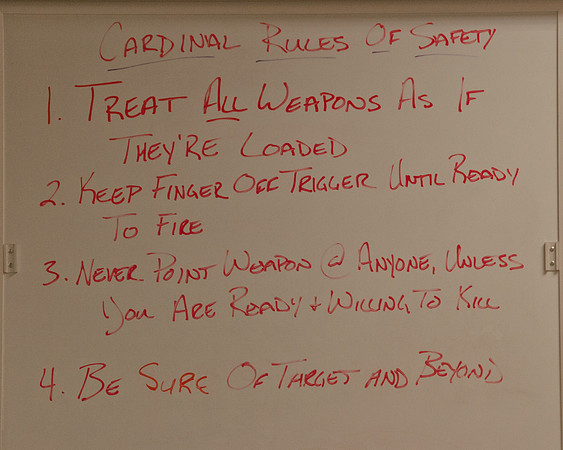 CARDINAL RULES OF SAFETY
1. TREAT ALL WEAPONS AS IF
THEY'RE LOADED
2. KEEP FINGER OFF TRIGGER UNTIL READY
TO FIRE
3. NEVER POINT WEAPON @ ANYONE, UNLESS
YOU ARE READY + WILLING TO KILL
4. BE SURE OF TARGET AND BEYOND